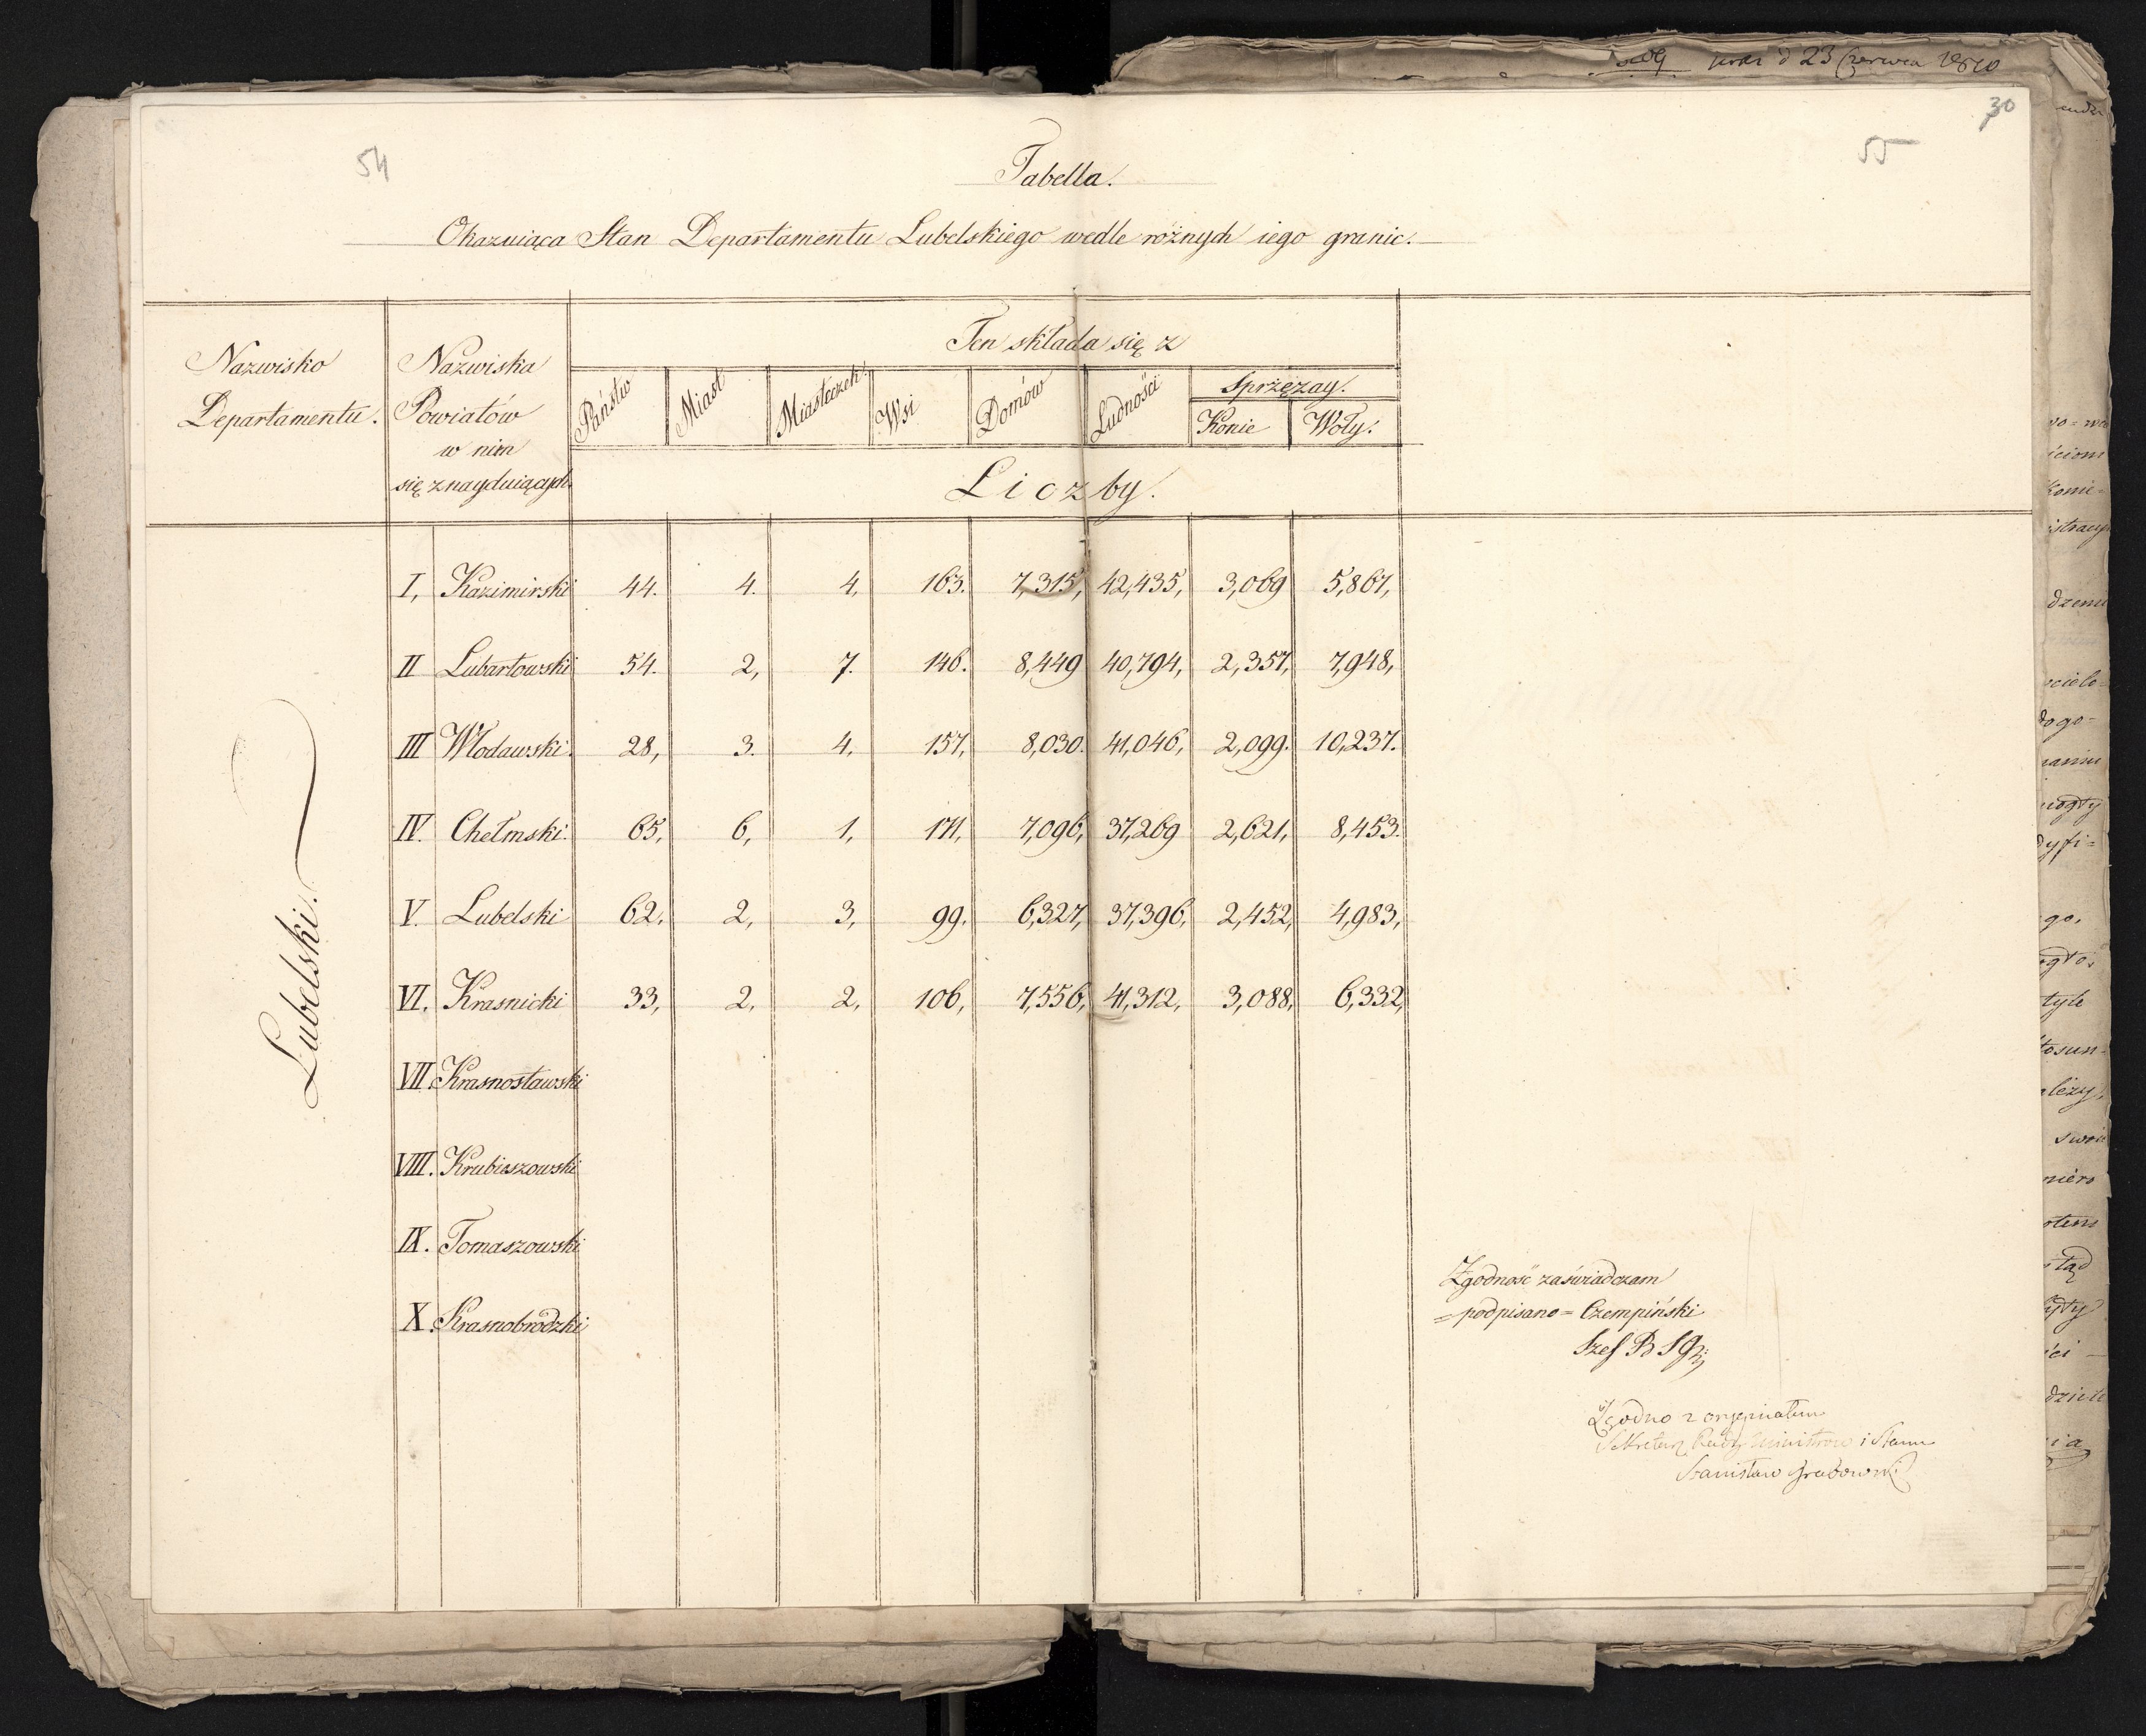 1810 23 Czerwca
30
54
55
Tabella.
Okazuiąca Stan Departamentu Lubelskiego wedle różnych iego granic.
Nazwisko Departamentu.
Nazwiska Powiatów w nim się znayduiących
Ten składa się z
Państw Miast Miasteczek Wsi Domów Ludności Sprzęzay.
Konie Woły.
Liczby.
Lubelski.
I, Kazimirski 44. 4. 4, 163. 7,315, 42,435, 3,069 5,867,
II Lubartowski 54. 2, 7. 146. 8,449 40,794, 2,357, 7,948,
III Włodawski. 28, 3. 4, 157, 8,030. 41,046, 2,099. 10,237.
IV. Chełmski. 65, 6, 1, 171, 7,096, 37,269 2,621, 8,453.
V. Lubelski 62. 2, 3, 99. 6,327, 37,396, 2,452, 4,983,
VI. Krasnicki 33, 2, 2, 106, 7,556, 41,312, 3,088, 6,332,
VII. Krasnostawski
VIII. Hrubieszowski
IX. Tomaszowski
X. Krasnobrodzki
Zgodność zaświadczam
=podpisano= Czempiński
Szef B
Zgodno z oryginałem
Sekretarz Rady Ministrow i Stanu
Stanisław Grabowski